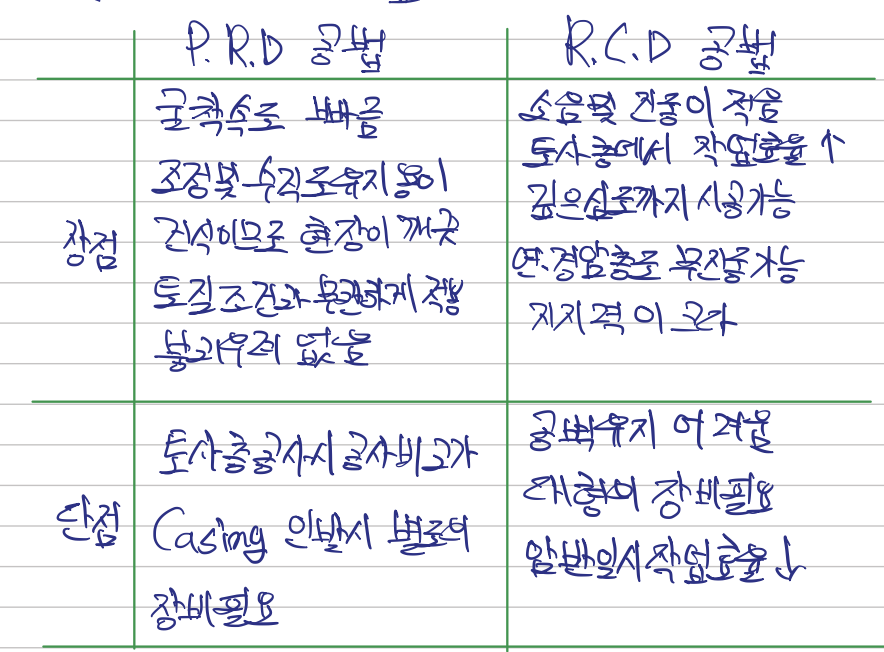 P.R.D 공법
R.C.D 공법
장점
굴착속도 빠름
조정및 수직도유지 용이
건식이므로 현장이 깨끗
토질조건과 무관하게 적용
붕괴우려 없음
소음및 진동이 적음
토사층에서 작업효율 ↑
깊은심도까지 시공가능
연·경암층도 무진동가능
지지력이 크다
단점
토사층공사시 공사비고가
Casing 인발시 별도의
장비필요
공벽유지 어려움
대형의 장비필요
암반일시작업효율↓